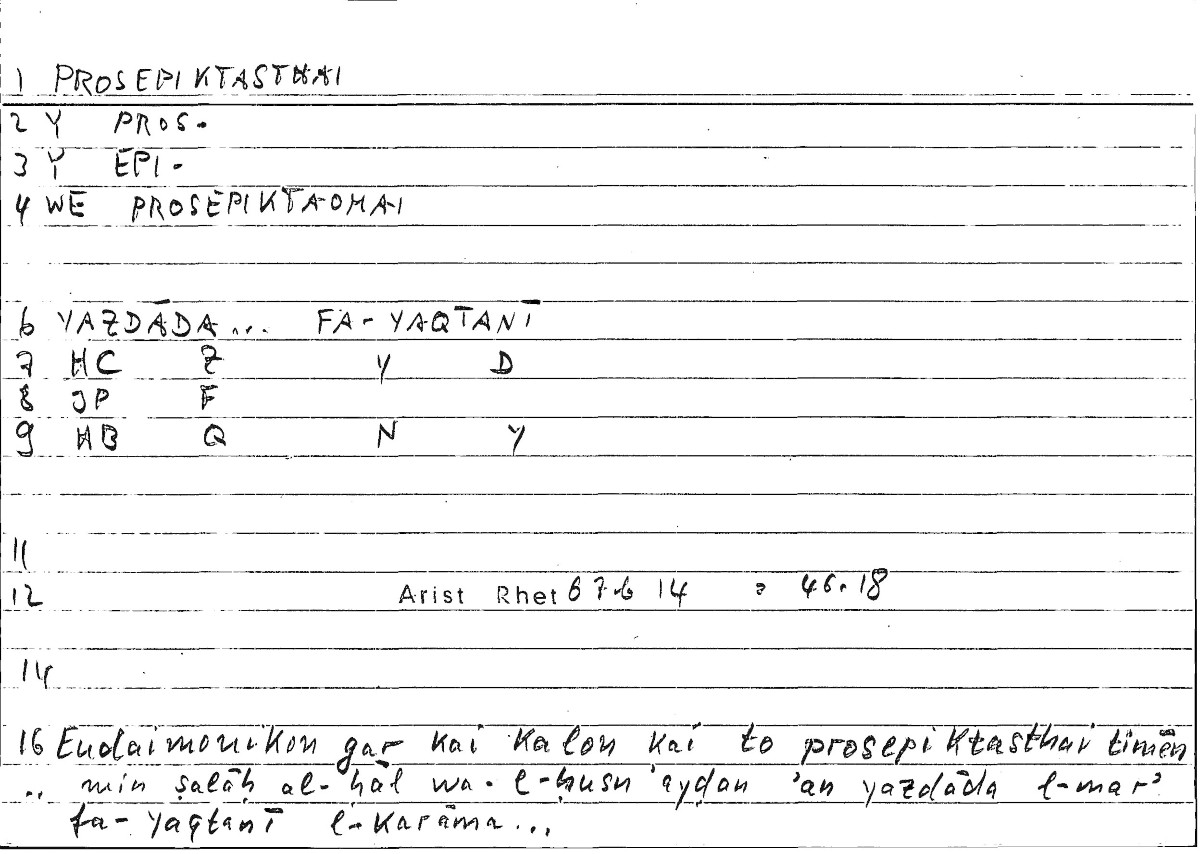 1 PROSEPIKTASTHAI
2 Y PROS-
3 Y EPI-
4 WE PROSEPIKTAOMAI
6 YAZDĀDA... FA-YAQTANĪ
7 HC Z Y D
8 JP F
9 HB Q N Y
11
12 Arist Rhet 67b 14 = 46.18
14
16 Eudaimonikon gar kai kalon kai to prosepiktasthai timēn
.. min ṣalāḥ al-ḥāl wa-l-ḥusn 'ayḍan 'an yazdāda l-mar'
fa-yaqtanī l-karāma...